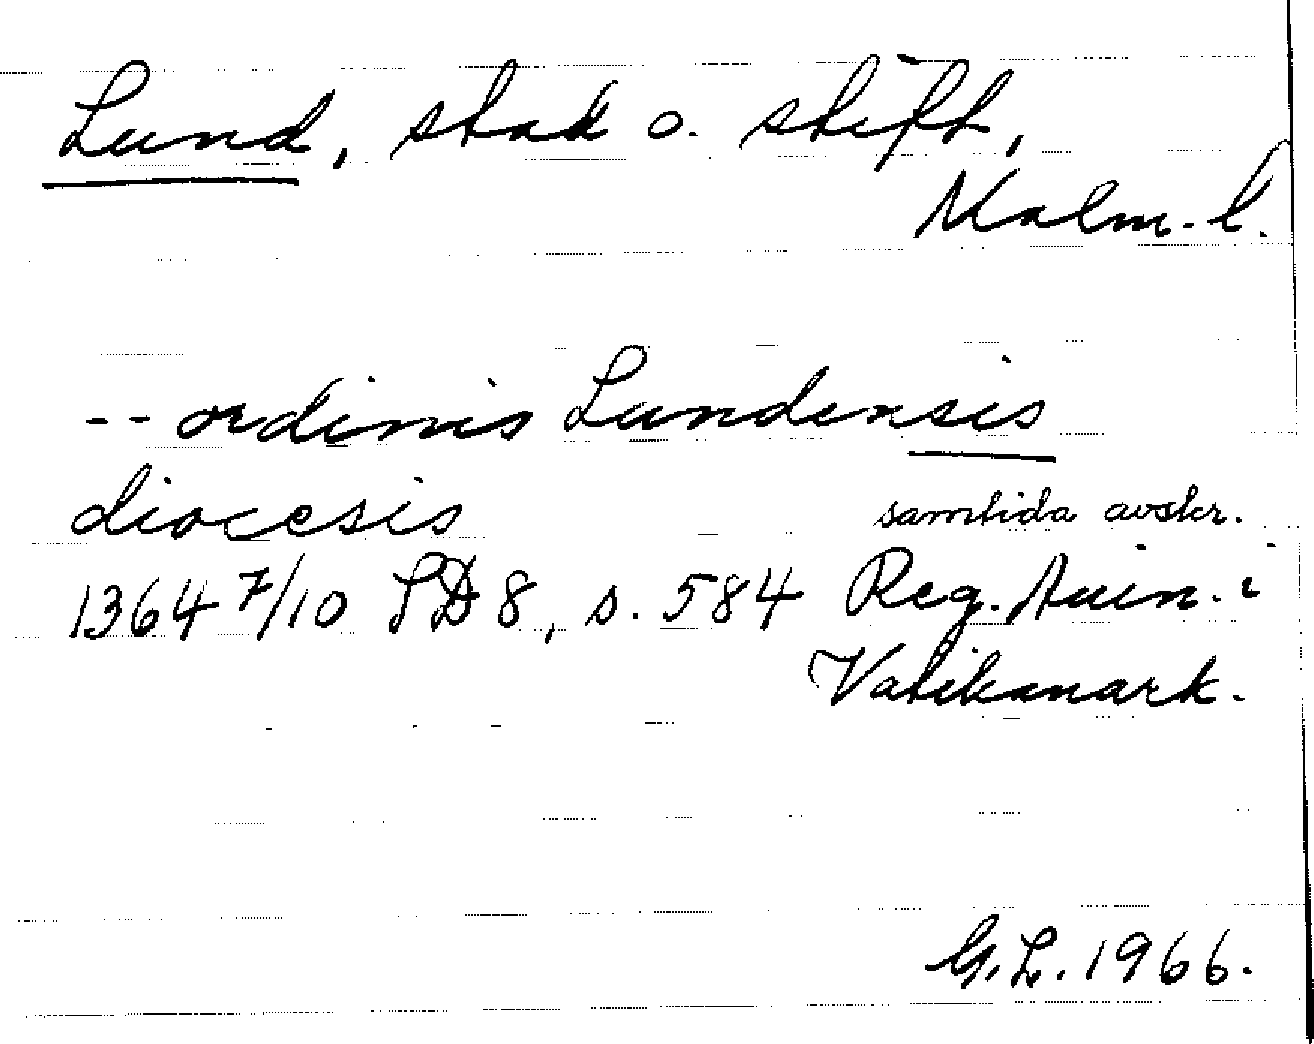 Lund, stad o. stift,
Malm. l.
-- ordinis Lundensis
diocesis
samtida avskr.
1364 7/10 SD 8, s. 584 Reg. Avin. i
Vatikanark.
G.L. 1966.